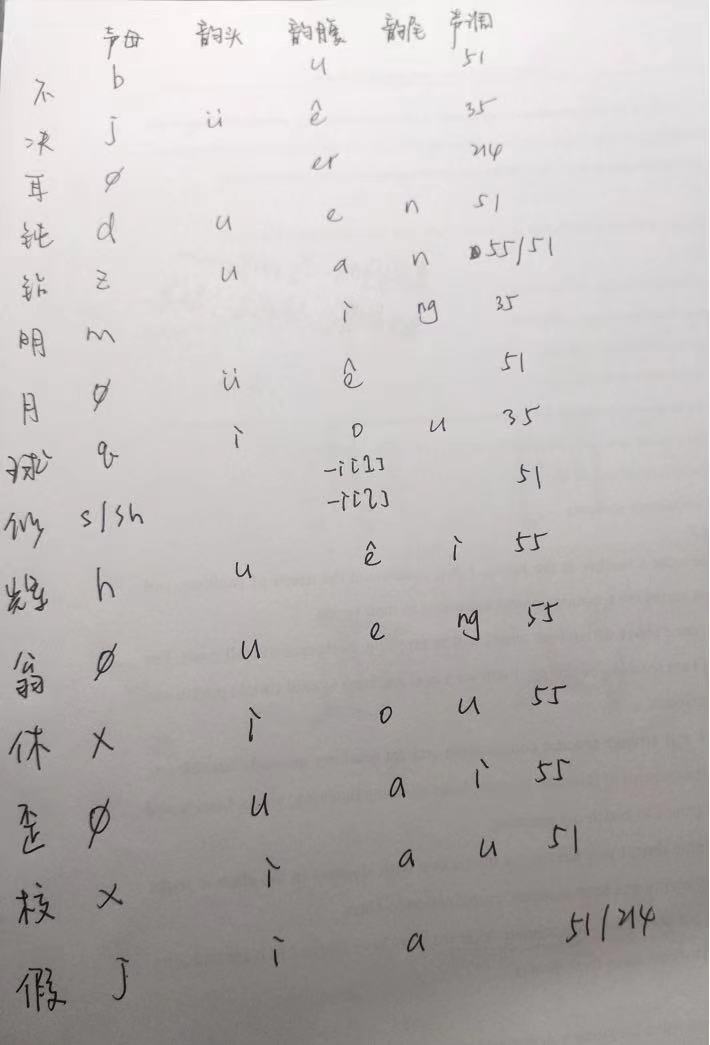 声母 韵头 韵腹 韵尾 声调
不 b u 51
决 j ü ê 35
耳 ∅ er 214
钝 d u e n 51
钻 z u a n 55/51
明 m i ng 35
月 ∅ ü ê 51
球 q i o u 35
似 s/sh -i[ɿ] -i[ʅ] 51
辉 h u ê i 55
翁 ∅ u e ng 55
休 x i o u 55
歪 ∅ u a i 55
校 x i a u 51
假 j i a 51/214